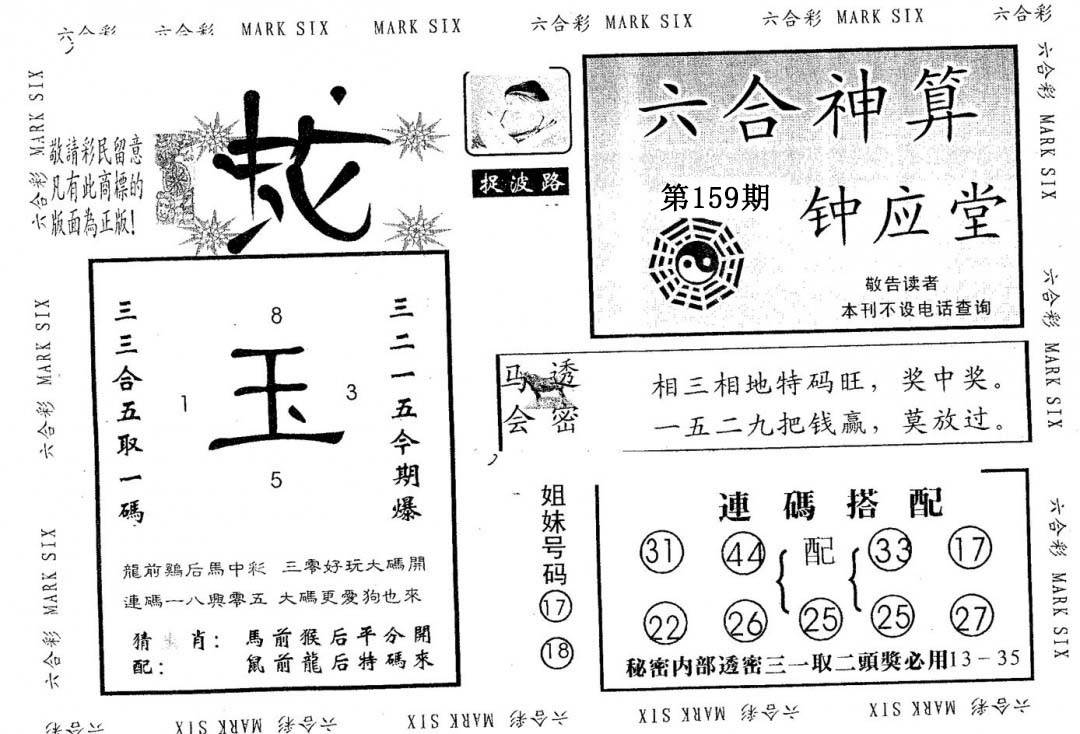 六合彩 六合彩 MARK SIX MARK SIX 六合彩 MARK SIX 六合彩 MARK SIX 六合彩
六合彩 MARK SIX
六合彩 MARK SIX
六合彩 MARK SIX
敬請彩民留意
凡有此商標的
版面為正版!
蛇
捉波路
六合神算
第159期
钟应堂
敬告读者
本刊不设电话查询
三三合五取一碼
8
1
玉
3
5
三二一五今期爆
龍前鷄后馬中彩 三零好玩大碼開
連碼一八興零五 大碼更愛狗也來
猜生肖: 馬前猴后平分開
配: 鼠前龍后特碼來
马会透密
相三相地特码旺,奖中奖。
一五二九把钱赢,莫放过。
姐妹号码
17
18
連碼搭配
31 44 配 33 17
22 26 25 25 27
秘密内部透密三一取二頭獎必用13-35
六合彩 MARK SIX
六合彩 MARK SIX
六合彩 MARK SIX
六合彩 六合彩 MARK SIX 六合彩 MARK SIX 六合彩 MARK SIX 六合彩 MARK SIX